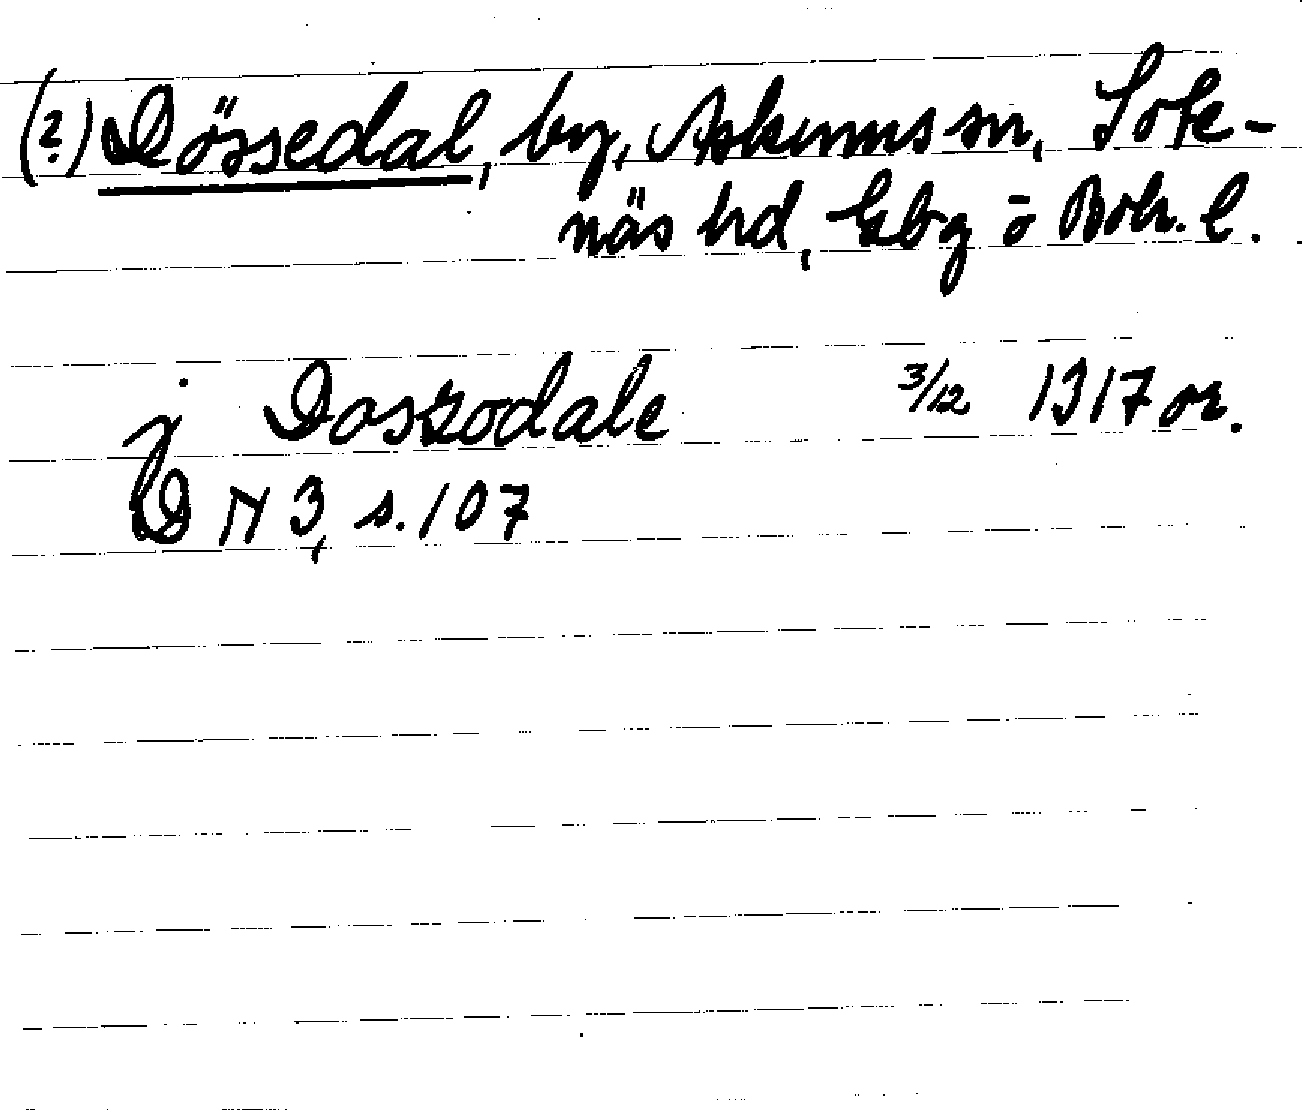 (?) Dössedal, by, Askums sn, Sote-
näs hd, Gbg o Boh. l.
j Daszodale 3/12 1317 or.
D N 3, s. 107